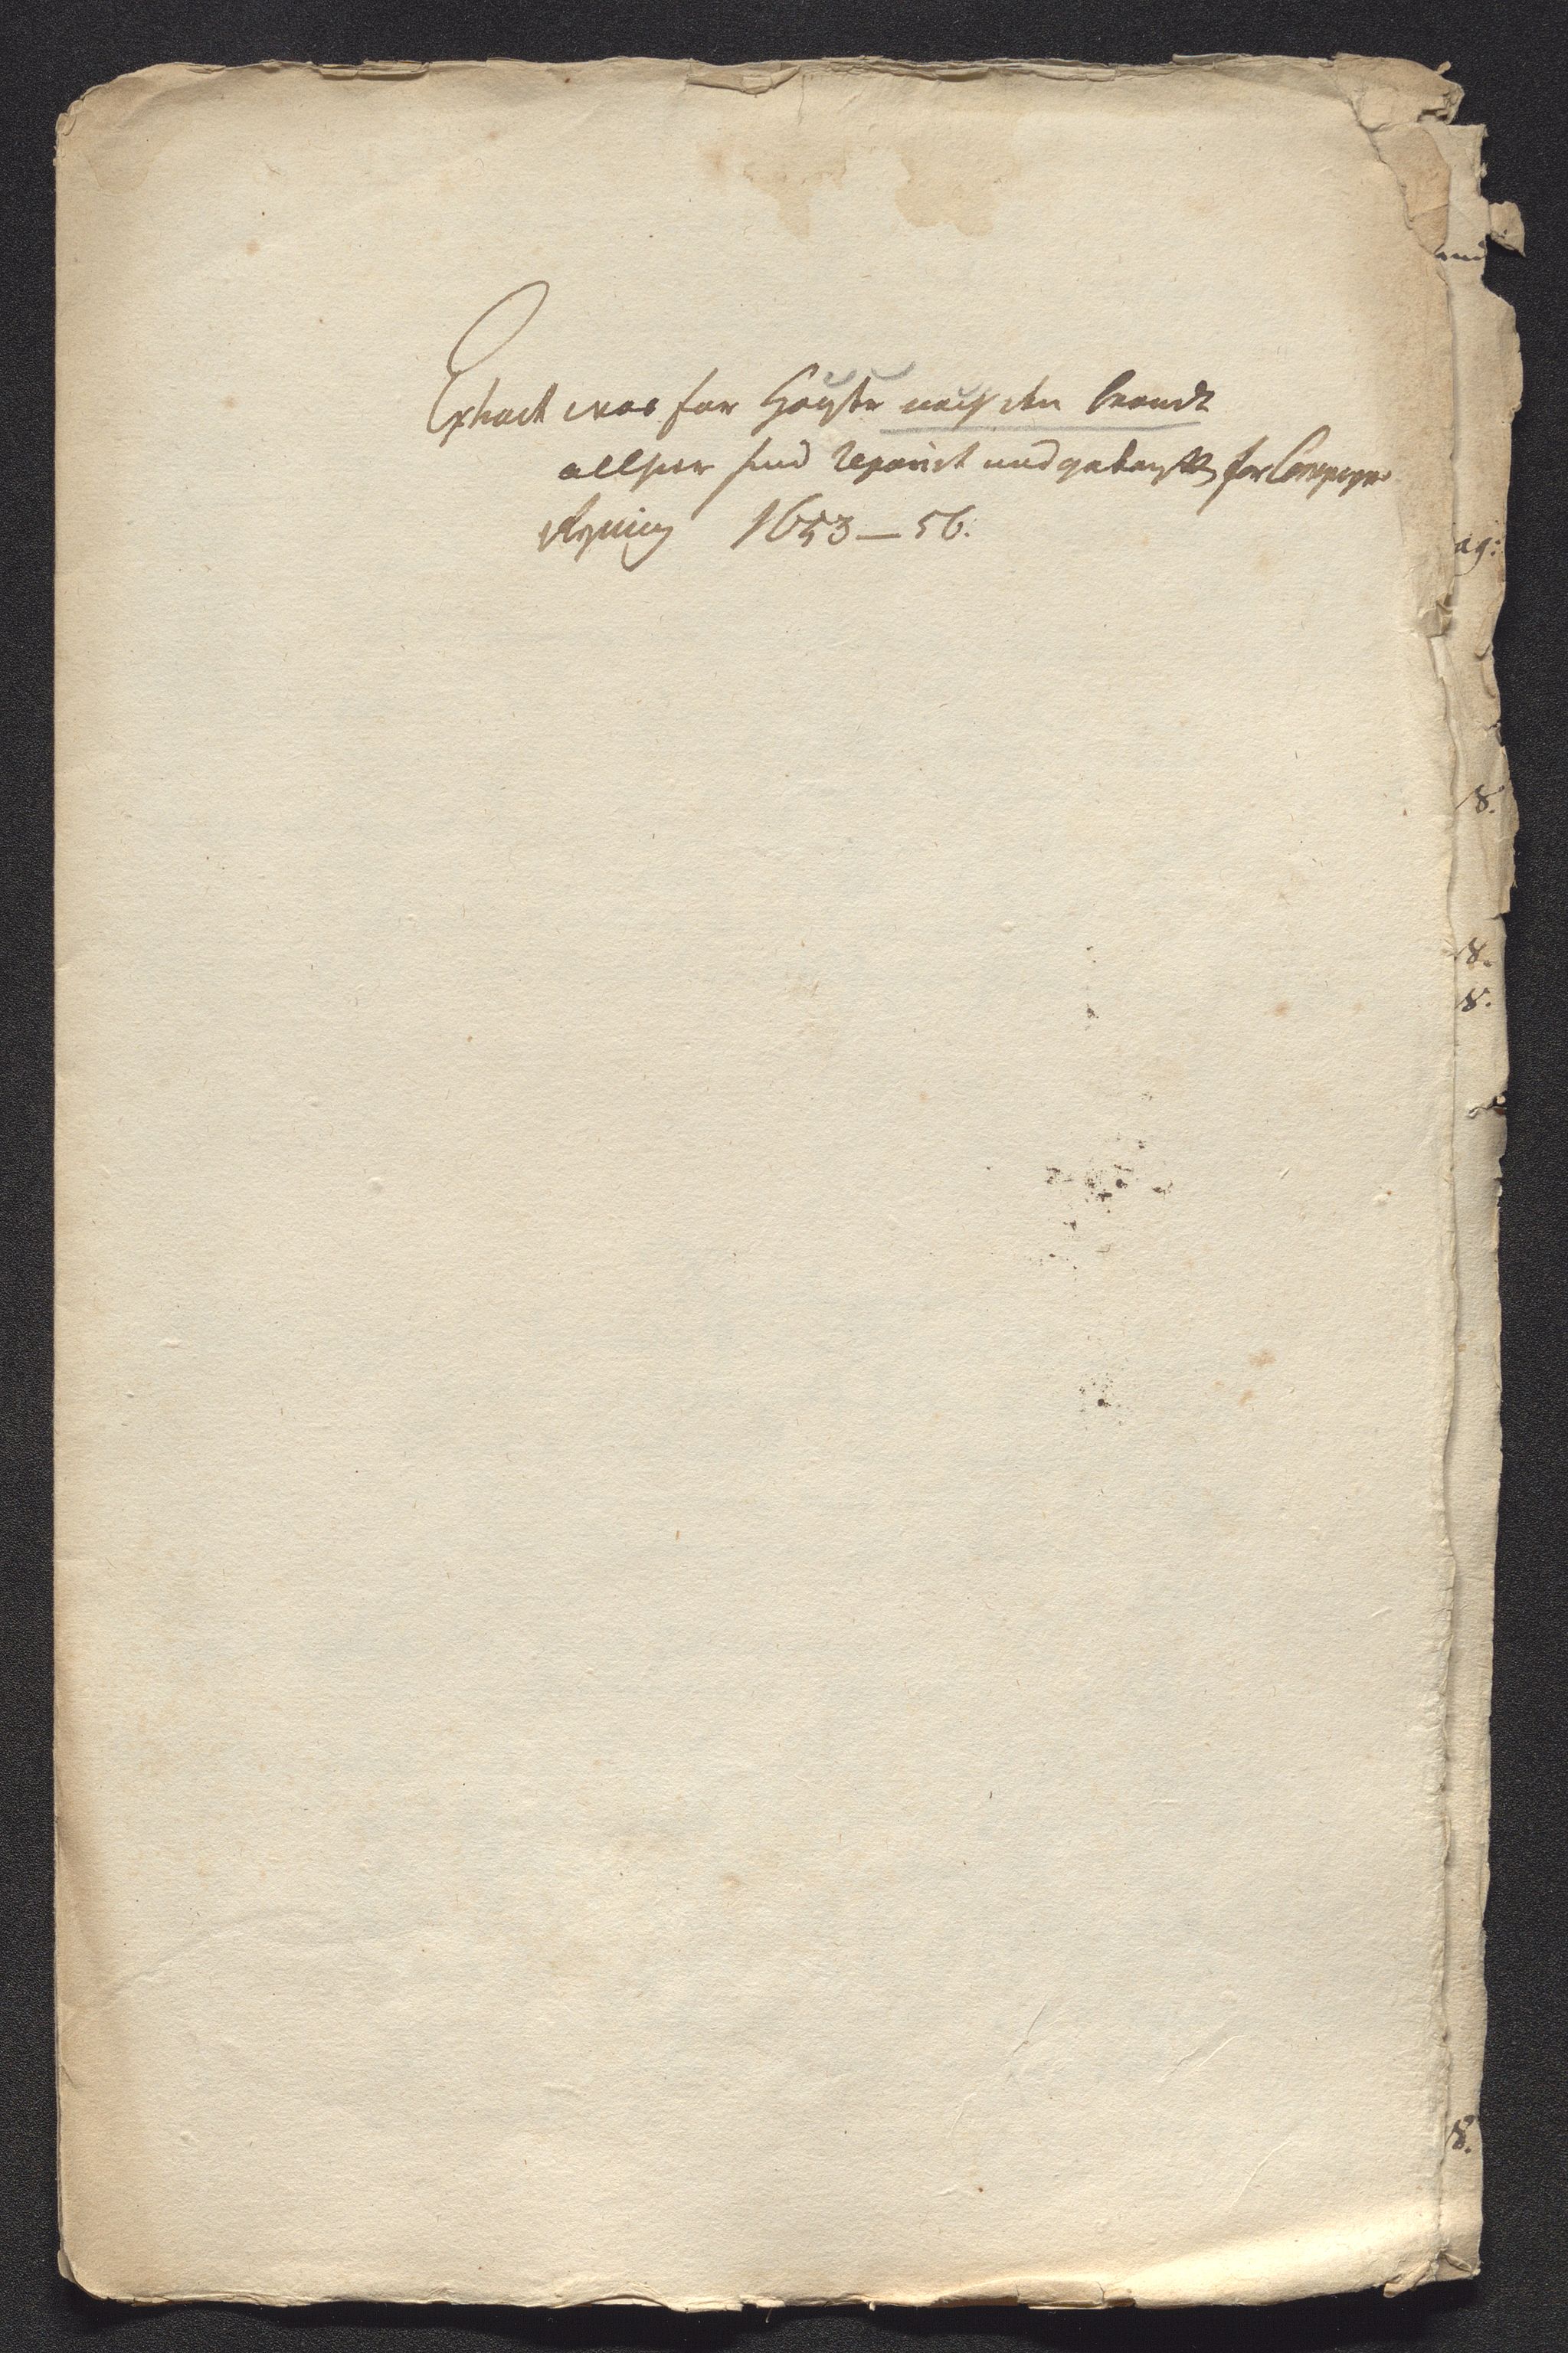 Extract was for Häuser nach den brandt
allhier sind reparirt und gebauet for Compagni
Regning 1653 – 56.
und
ag:
8.
8.
8.
8.